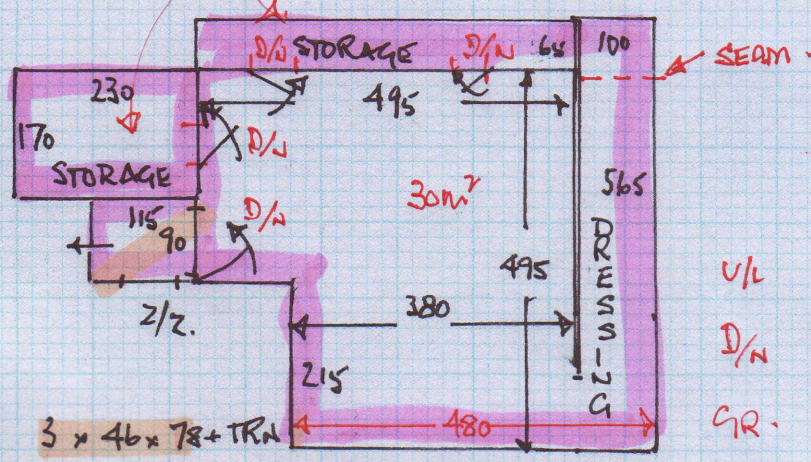 D/N STORAGE D/N 65 100
SEAM
230 495
170
D/N
STORAGE 30m² 565
115 D/N
90
495
DRESSING
U/L
2/2. 380
D/N
215
3 x 46 x 78 + TRN 480 GR.